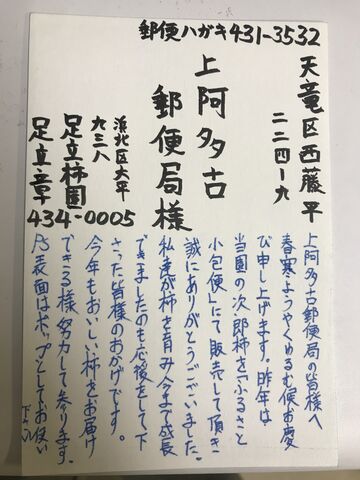 郵便ハガキ 431-3532
天竜区西藤平
二二四一九
上阿多古
郵便局様
浜北区大平
九三八
足立柿園
足立章
434-0005
上阿多古郵便局の皆様へ
春寒ようやくゆるむ便お慶
び申し上げます。昨年は
当園の次郎柿を「ふるさと
小包便」にて販売して頂き
誠にありがとうございました。
私達が柿を育み今まで成長
できましたのも応援をして下
さった皆様のおかげです。
今年もおいしい柿をお届け
できる様努力して参ります。
P.S 表面はポップとしてお使い
下さい